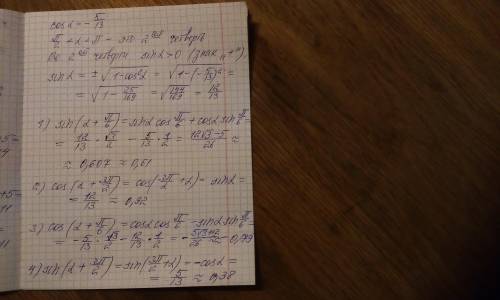 cosα = - 5/13
π/2 < α < π - это 2ой четверть
Во 2ой четверти sinα>0 (знак „+")
sinα = ± √1-cos²α = √1-(-5/13)² =
= √1 - 25/169 = √144/169 = 12/13
1) sin(α + π/6) = sinα cos π/6 + cosα sin π/6 =
= 12/13 · √3/2 - 5/13 · 1/2 = 12√3-5/26 ≈
≈ 0,607 ≈ 0,61
2) cos(α + 3π/2) = cos(3π/2 + α) = sinα =
= 12/13 ≈ 0,92
3) cos(α + π/6) = cosα cos π/6 - sinα sin π/6 =
= - 5/13 · √3/2 - 12/13 · 1/2 = - 5√3+12/26 ≈ - 0,79
4) sin(α + 3π/2) = sin(3π/2 + α) = - cosα =
= 5/13 ≈ 0,38